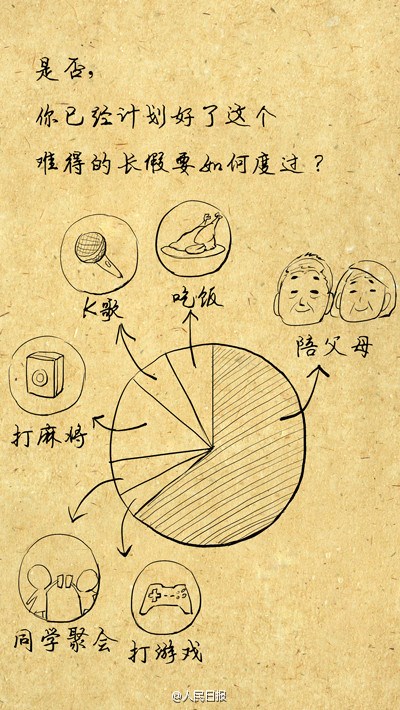 是否，
你已经计划好了这个
难得的长假要如何度过？
K歌
吃饭
陪父母
打麻将
同学聚会
打游戏
@人民日报